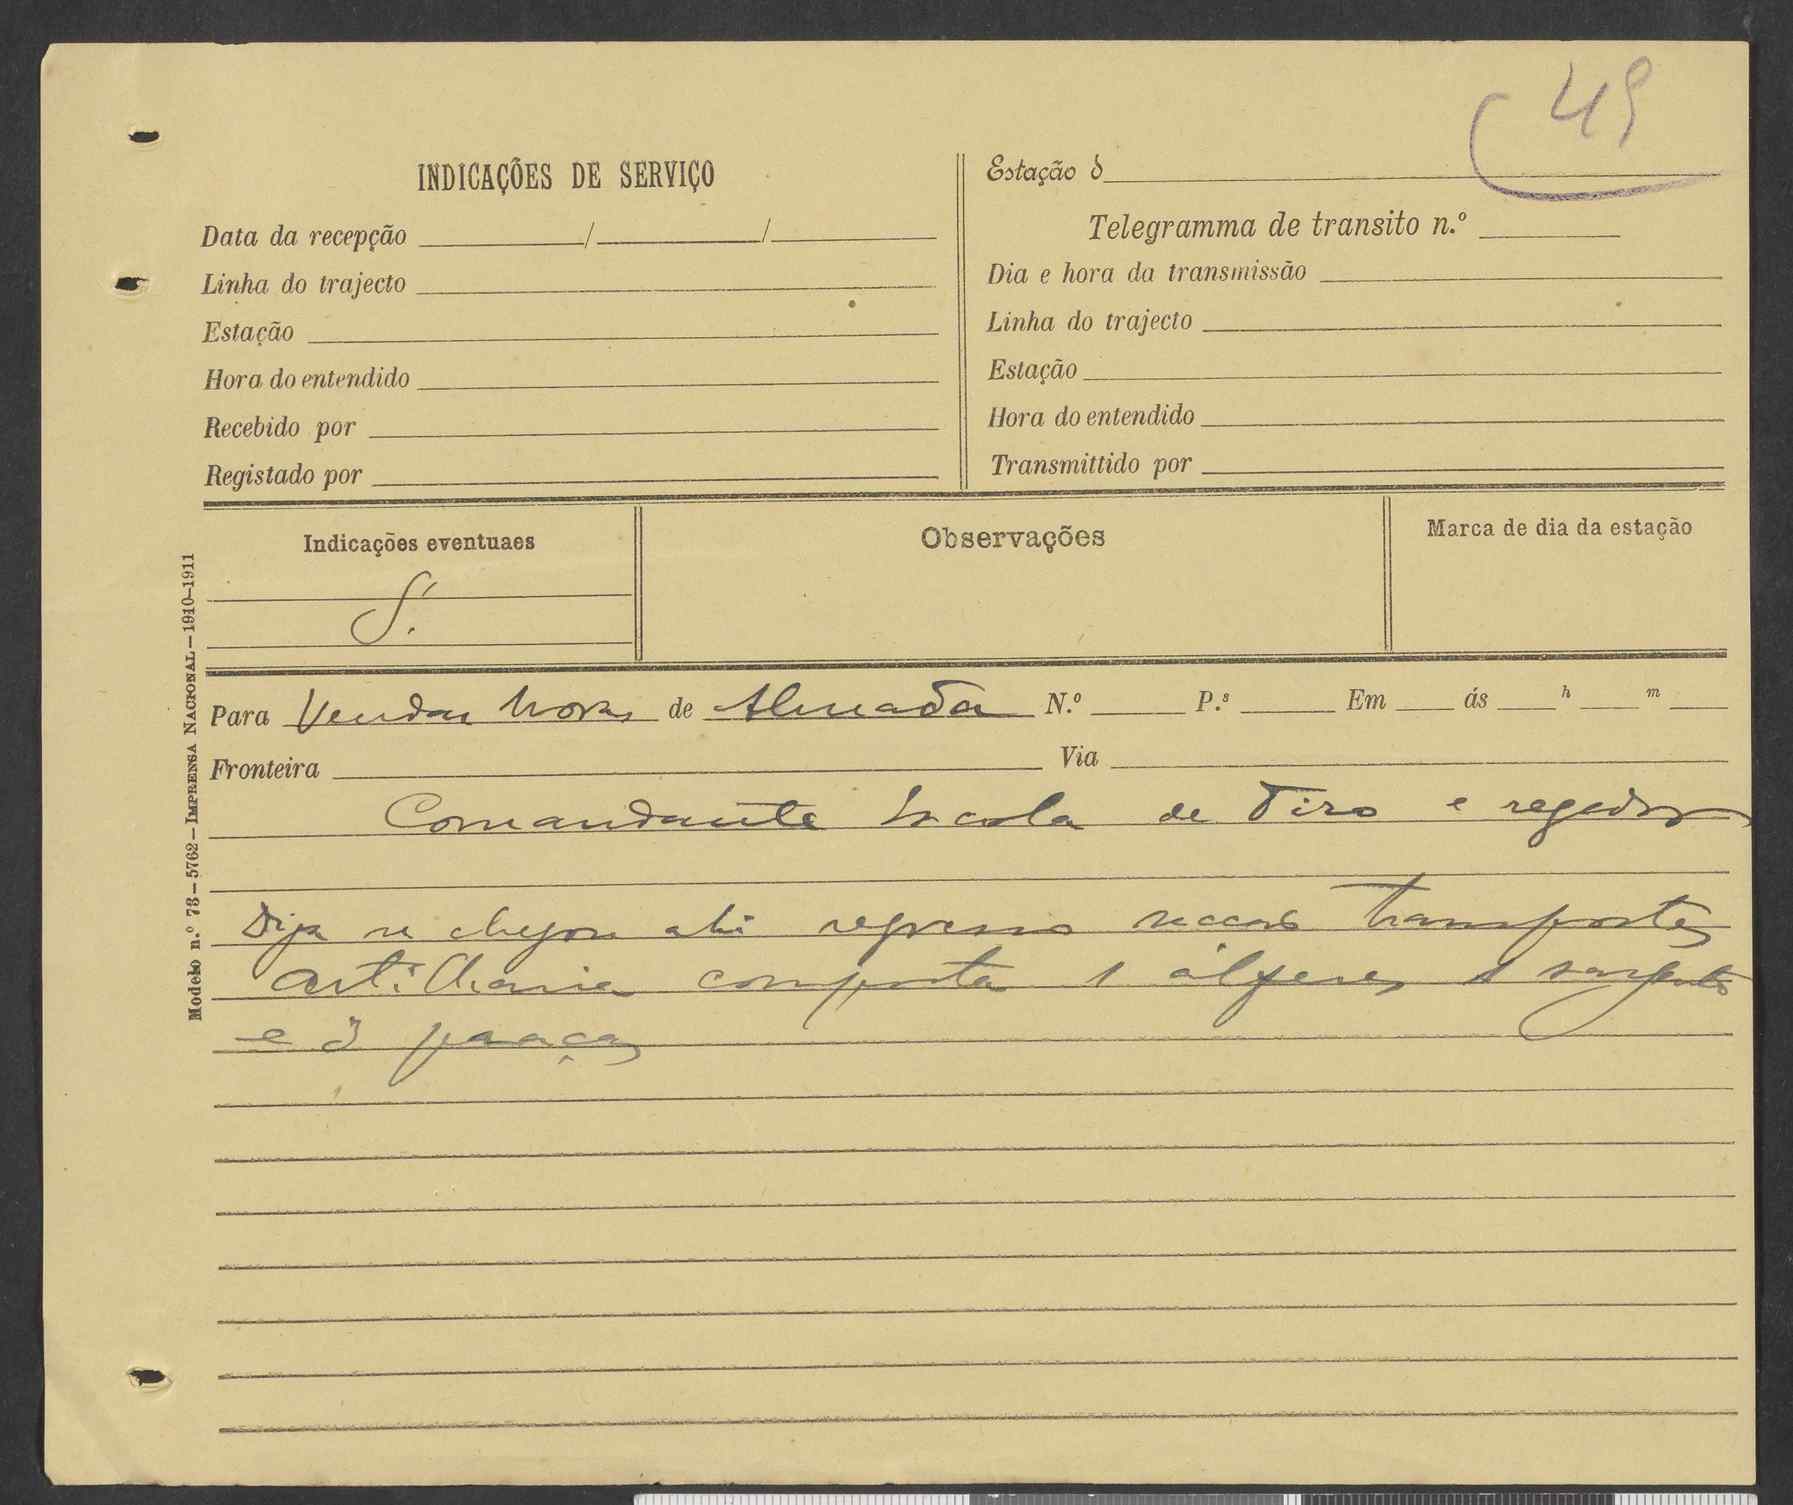 49
INDICAÇÕES DE SERVIÇO
Data da recepção / /
Linha do trajecto
Estação
Hora do entendido
Recebido por
Registado por
Estação d
Telegramma de transito n.º
Dia e hora da transmissão
Linha do trajecto
Estação
Hora do entendido
Transmittido por
Indicações eventuaes
S.
Observações
Marca de dia da estação
Para Vendas Novas de Almada N.º P.s Em ás h m
Fronteira Via
Comandante Escola de Tiro e regedor
Diga se chegou ahi regresso secção transportes
artilharia composta 1 alferes 1 sargento
e 3 praças
Modelo n.º 73—5762—IMPRENSA NACIONAL—1910-1911